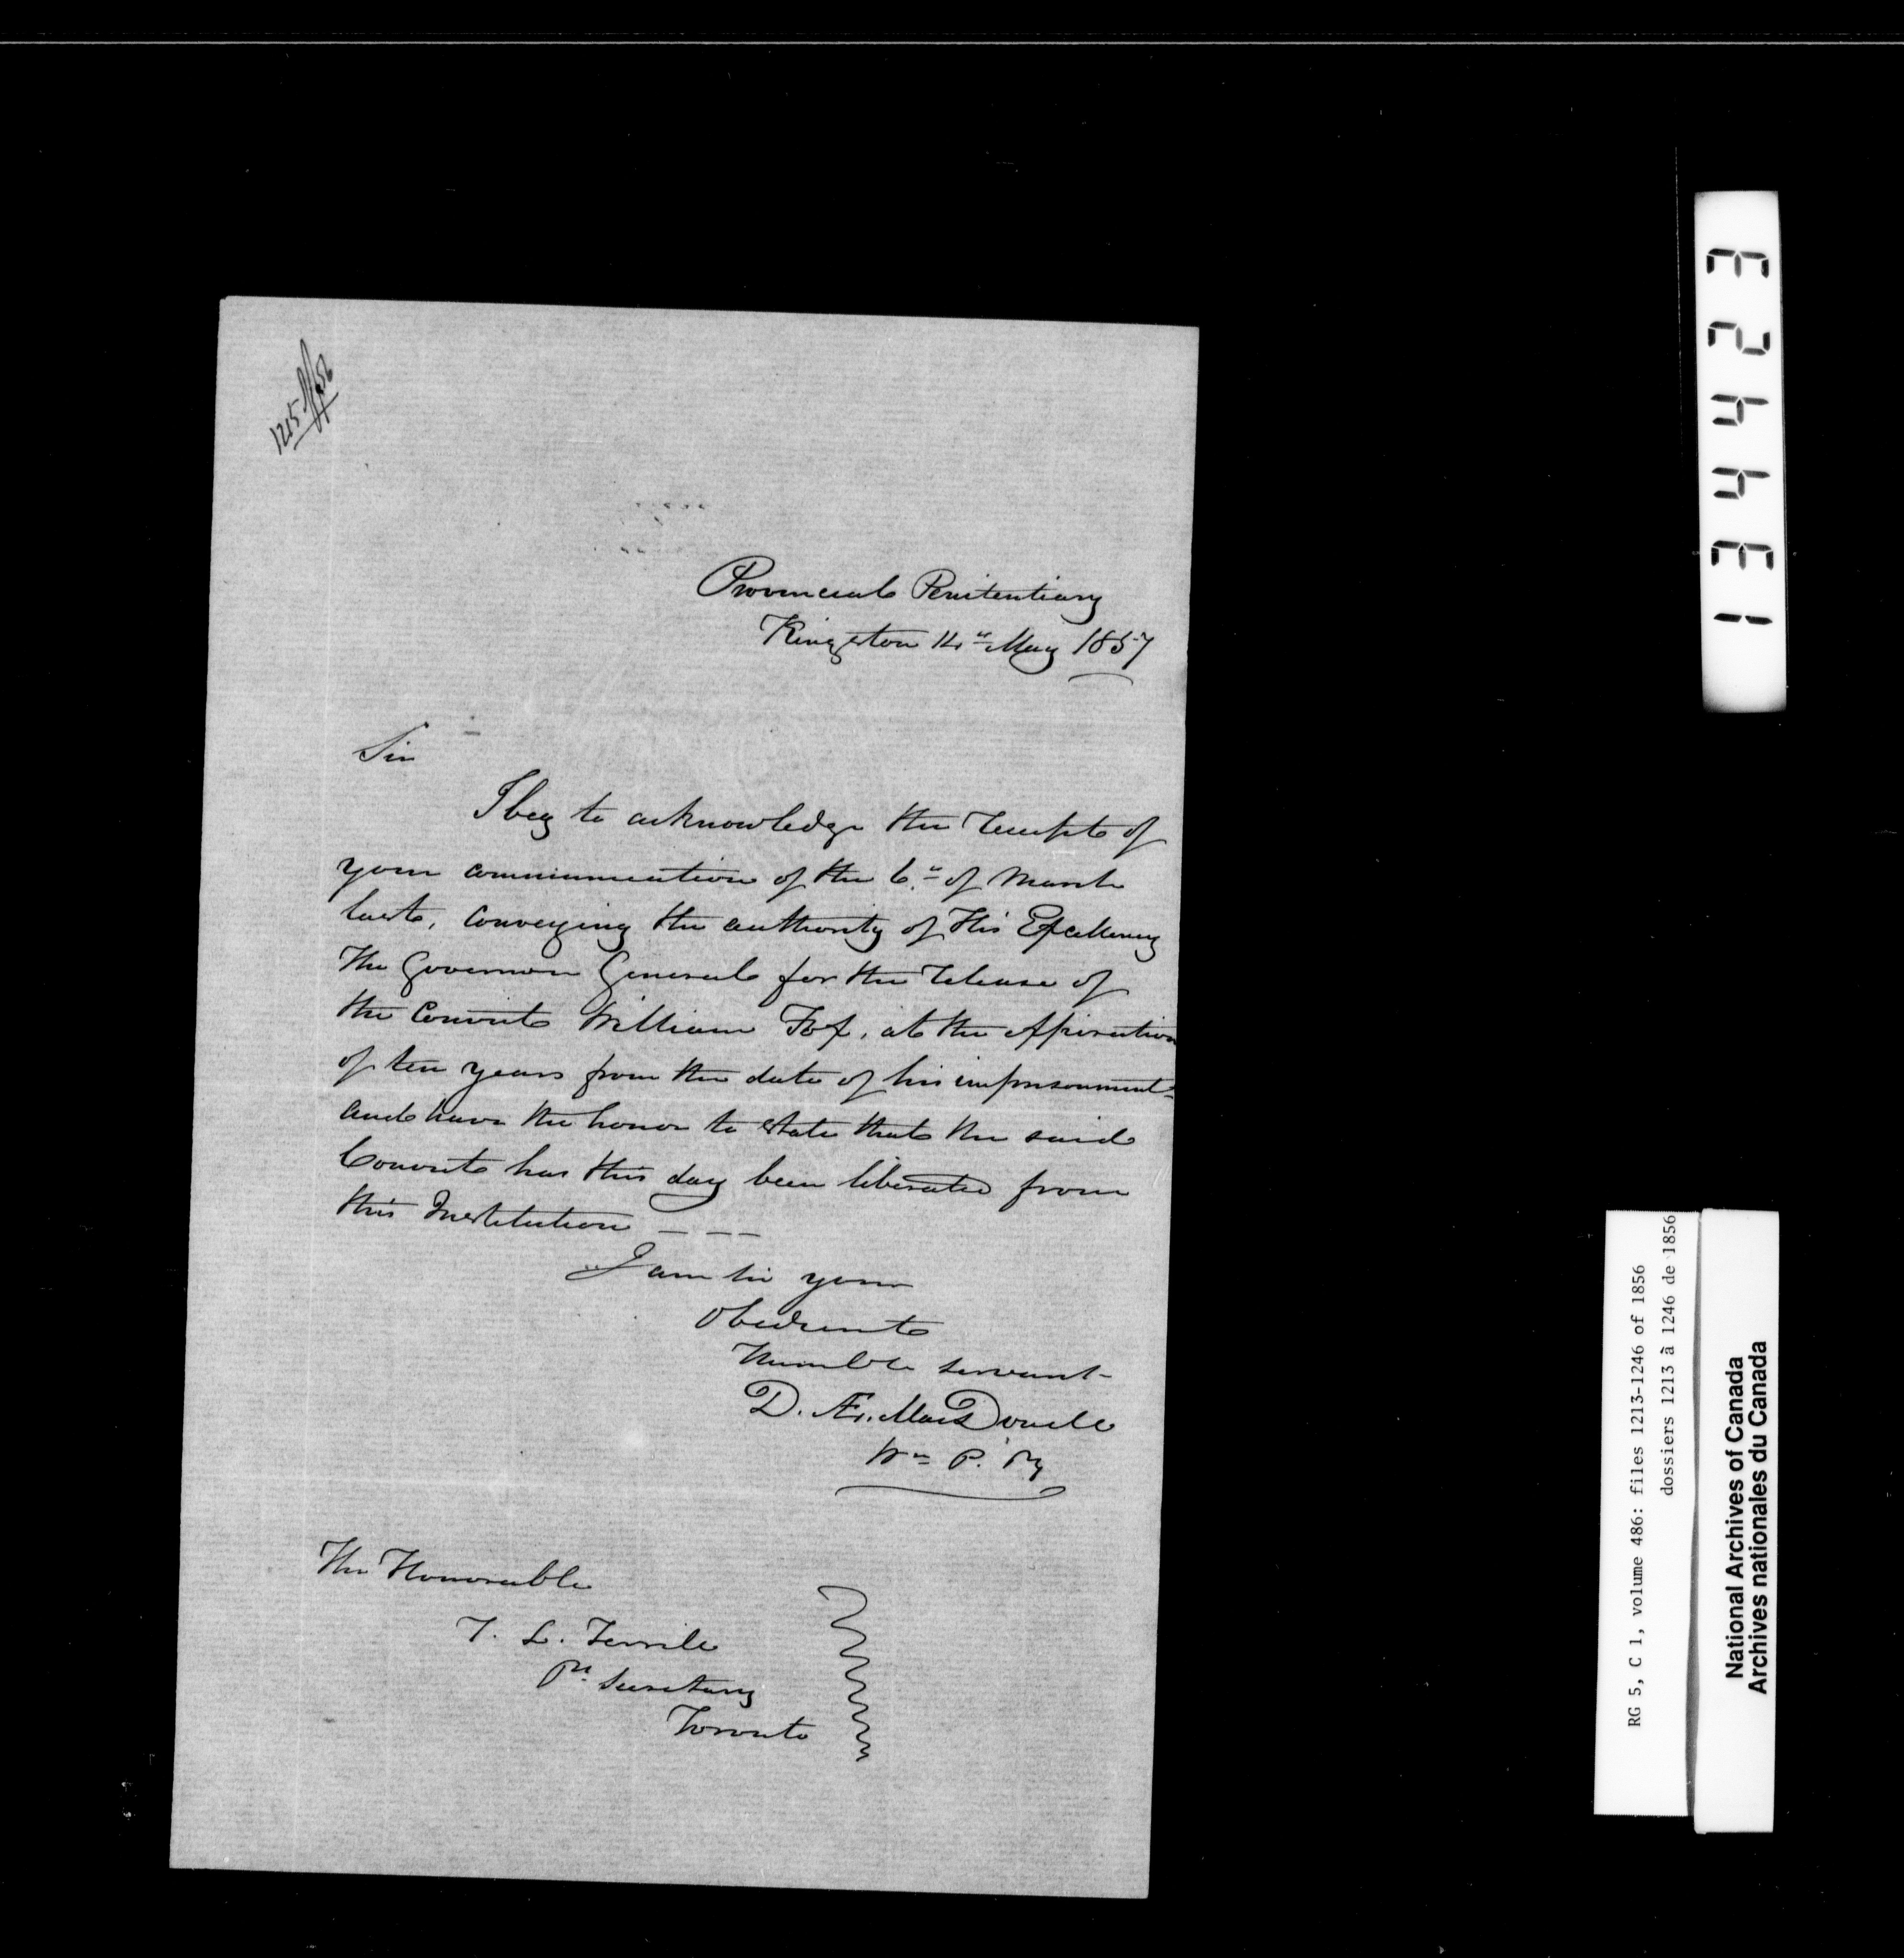 1215/1856
Provincial Penitentiary
Kingston 14" May 1857
Sir
I beg to acknowledge the receipt of
your communication of the 6" of March
last, conveying the authority of His Excellency
The Governor General for the release of
the Convict William Fox, at the expiration
of ten years from the date of his imprisonment
and have the honor to state that the said
Convict has this day been liberated from
this Institution ---
I am Sir your
Obedient
Humble servant
D. Æ. MacDonell
Wn P. Py
The Honorable
T. L. Terrill
Pl. Secretary
Toronto
134423
RG 5, C 1, volume 486: files 1213-1246 of 1856
dossiers 1213 à 1246 de 1856
National Archives of Canada
Archives nationales du Canada